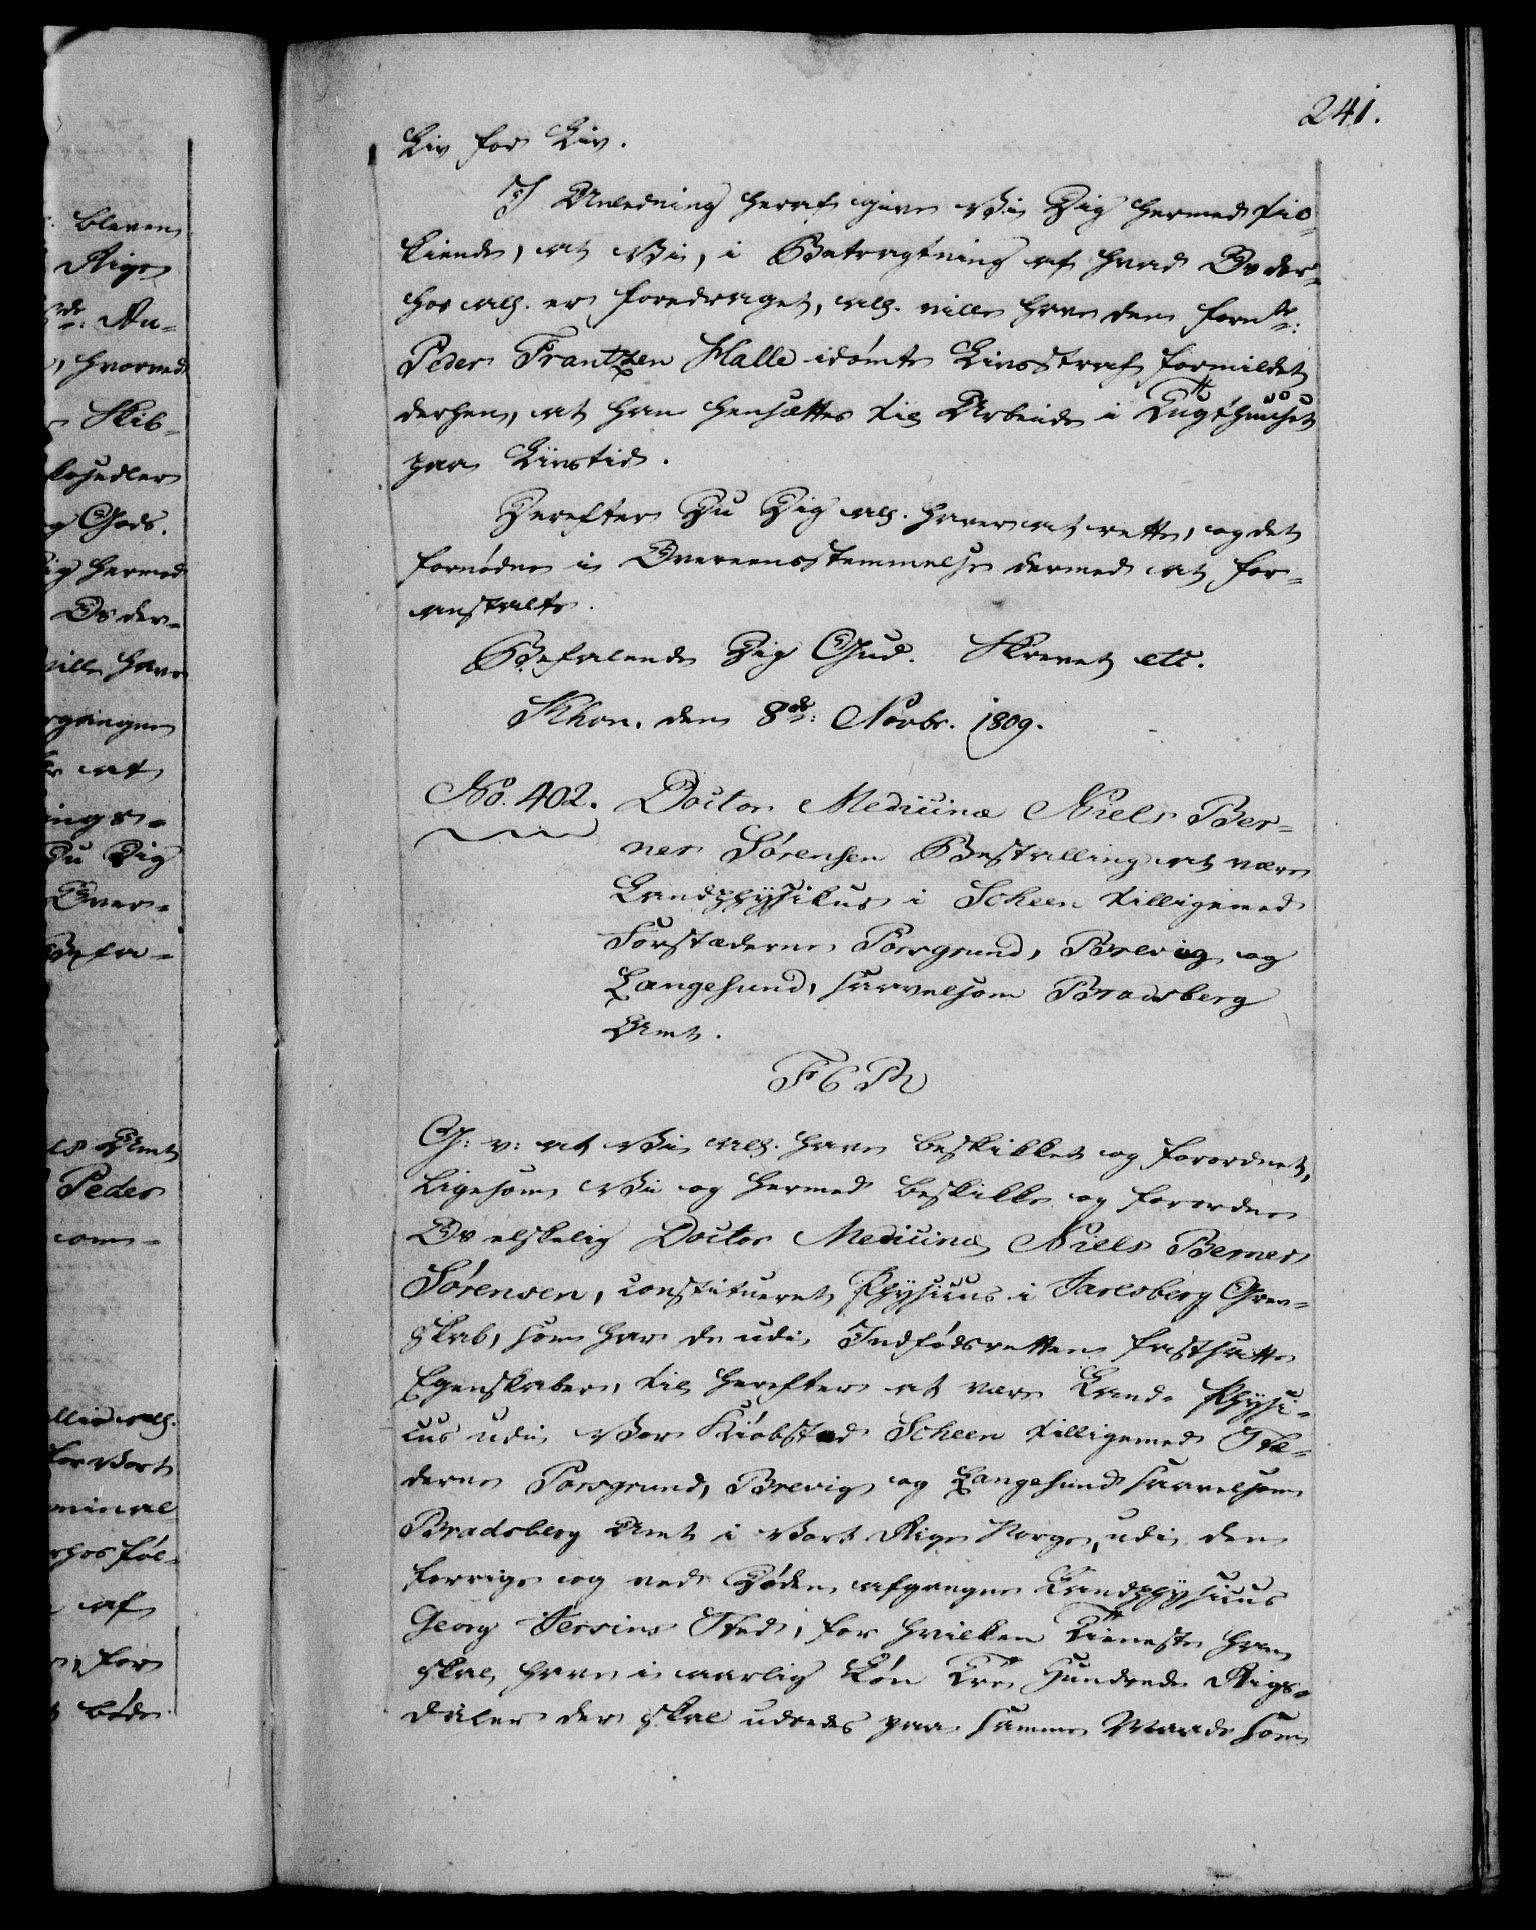 241.
Liv for Liv.
I Anledning heraf give Vi Dig hermed til-
kiende, at Vi, i Betragtning af hvad Os der-
hos alg. er foredraget, alg. ville have den fornte:
Peder Frantzen Halle idømte Livsstraf formildet
derhen, at han hensættes til Arbeide i Tugthuuset
paa Livstid.
Derefter Du Dig alg. haver at rette, og det
fornødne i Overeensstemmelse dermed at for-
anstalte.
Befalende Dig Gud. Skrevet etc.
Khon. den 8de: Novbr. 1809.
No. 402. Doctor Medicinæ Niels Ber-
ner Sørensen Bestalling at være
Landphysikus i Scheen tilligemed
Forstæderne Porsgrund, Brevig og
Langesund, saavelsom Bradsberg
Amt.
F 6 R
G: v: at Vi alg. have beskikket og forordnet,
ligesom Vi og hermed beskikke og forordne
Os elskelig Doctor Medicinæ Niels Berner
Sørensen, constitueret Physicus i Jarlsberg Grev-
skab, som har de udi Indfødsretten fastsatte
Egenskaber, til herefter at være Land-Physi-
cus udi Vor Kiøbstad Scheen tilligemed Stæ-
derne Porsgrund, Brevig og Langesund saavelsom
Bradsberg Amt i Vort Rige Norge, udi den
forrige og ved Døden afgangne Landphysicus
Georg Sted, for hvilken Tieneste han
skal have i aarlig Løn Tre Hundrede Rigs-
daler der skal udredes paa samme Maade som
bleven
Rige
hvorved
Skib-
Gods.
hermed
Os der-
ville have
at
Du Dig
Over-
Befa-
Amt
Peder
alg.
for Vort
minal
føl-
af
for
både